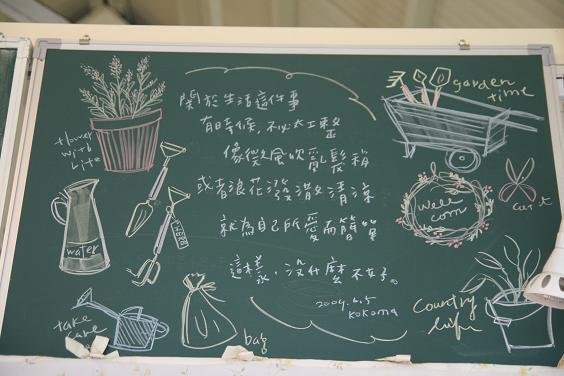 關於生活這件事
有時候，不必太工整
像微風吹亂髮稍
或者浪花潑濺清涼
就為自己所愛而簡單
這樣，沒什麼不好。
2009.6.5
KOKOMA
flower
with
life
water
take
care
bag
garden
time
well
com
cut
Country
life